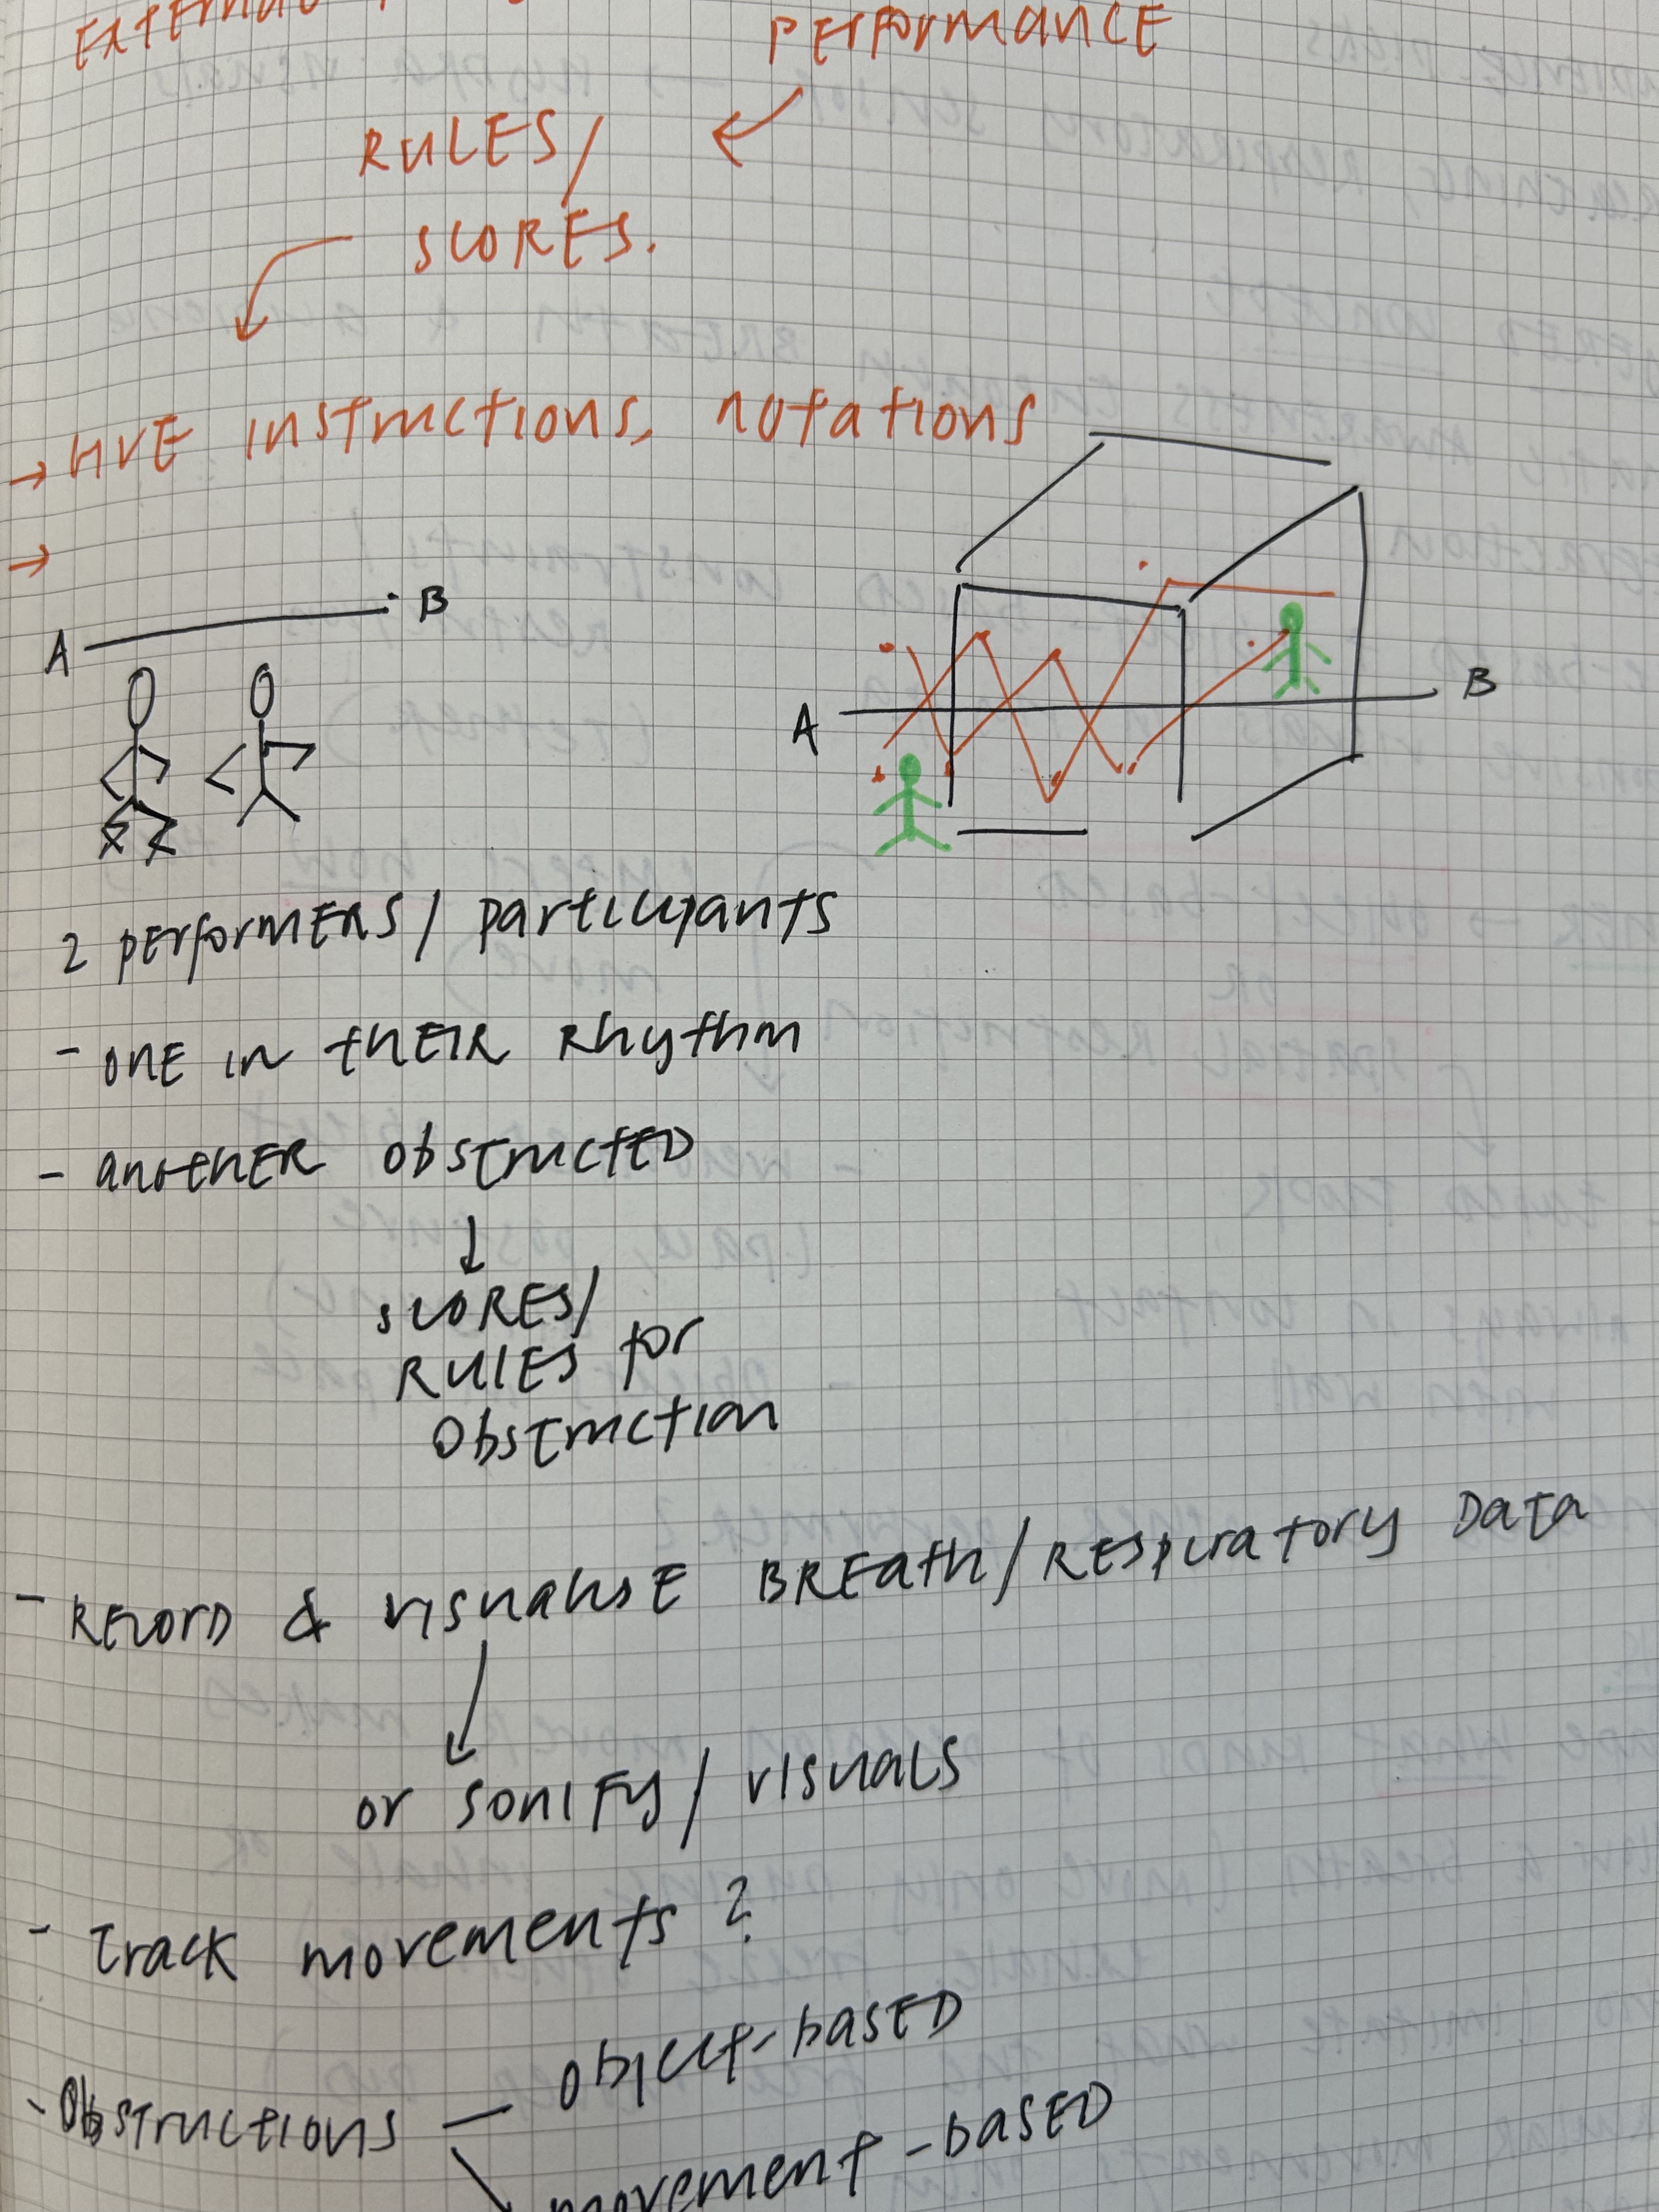 PERFORMANCE
RULES/
SCORES.
→ LIVE INSTRUCTIONS, NOTATIONS
→
A B
A B
2 PERFORMERS / PARTICIPANTS
- ONE IN THEIR RHYTHM
- ANOTHER OBSTRUCTED
↓
SCORES/
RULES FOR
OBSTRUCTION
- RECORD & VISUALISE BREATH/RESPIRATORY DATA
OR SONIFY / VISUALS
- TRACK MOVEMENTS ?
- OBSTRUCTIONS — OBJECT-BASED
MOVEMENT-BASED